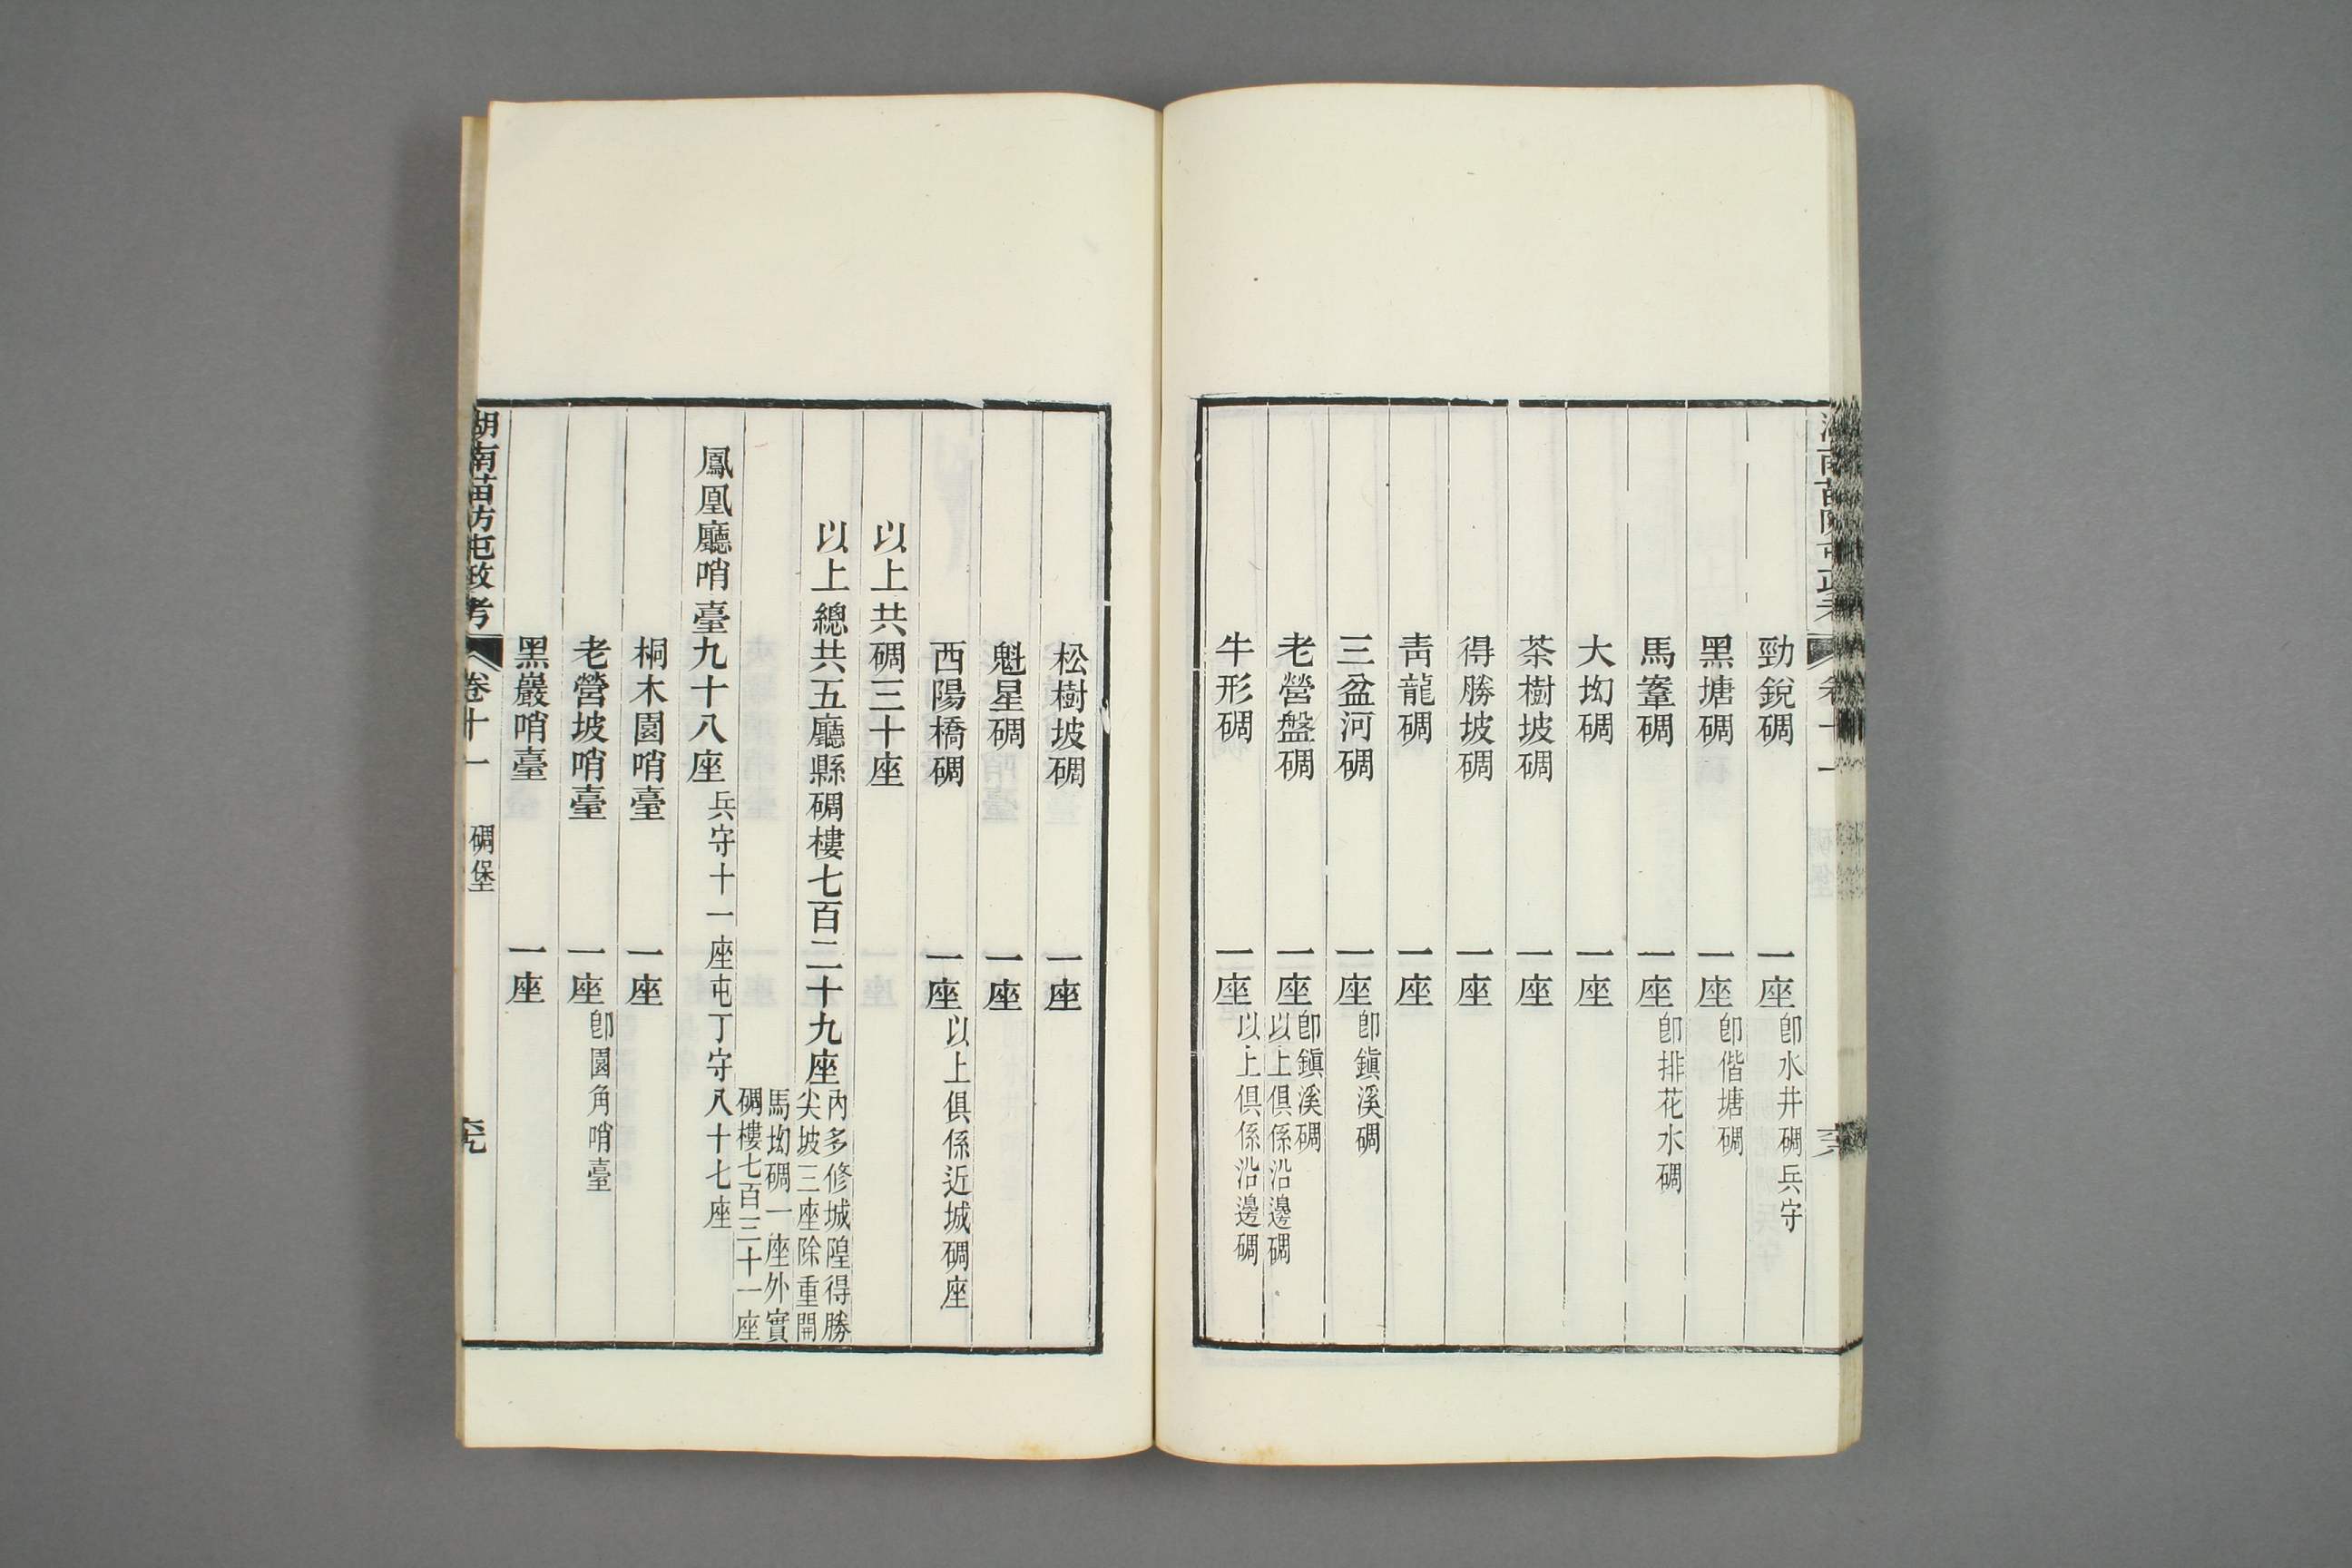 勁銳碉 一座 卽水井碉兵守
黑塘碉 一座 卽偕塘碉
馬鞌碉 一座 卽排花水碉
大坳碉 一座
茶樹坡碉 一座
得勝坡碉 一座
靑龍碉 一座
三盆河碉 一座 卽鎭溪碉
老營盤碉 一座 卽鎭溪碉
以上俱係沿邊碉
牛形碉 一座 以上俱係沿邊碉
松樹坡碉 一座
魁星碉 一座
西陽橋碉 一座 以上俱係近城碉座
以上共碉三十座
以上總共五廳縣碉樓七百二十九座 內多修城隍得勝
尖坡三座除重開
馬坳碉一座外實
碉樓七百三十一座
鳳凰廳哨臺九十八座 兵守十一座屯丁守八十七座
桐木園哨臺 一座
老營坡哨臺 一座 卽園角哨臺
黑巖哨臺 一座
湖南苗防屯政考 卷十一 碉堡